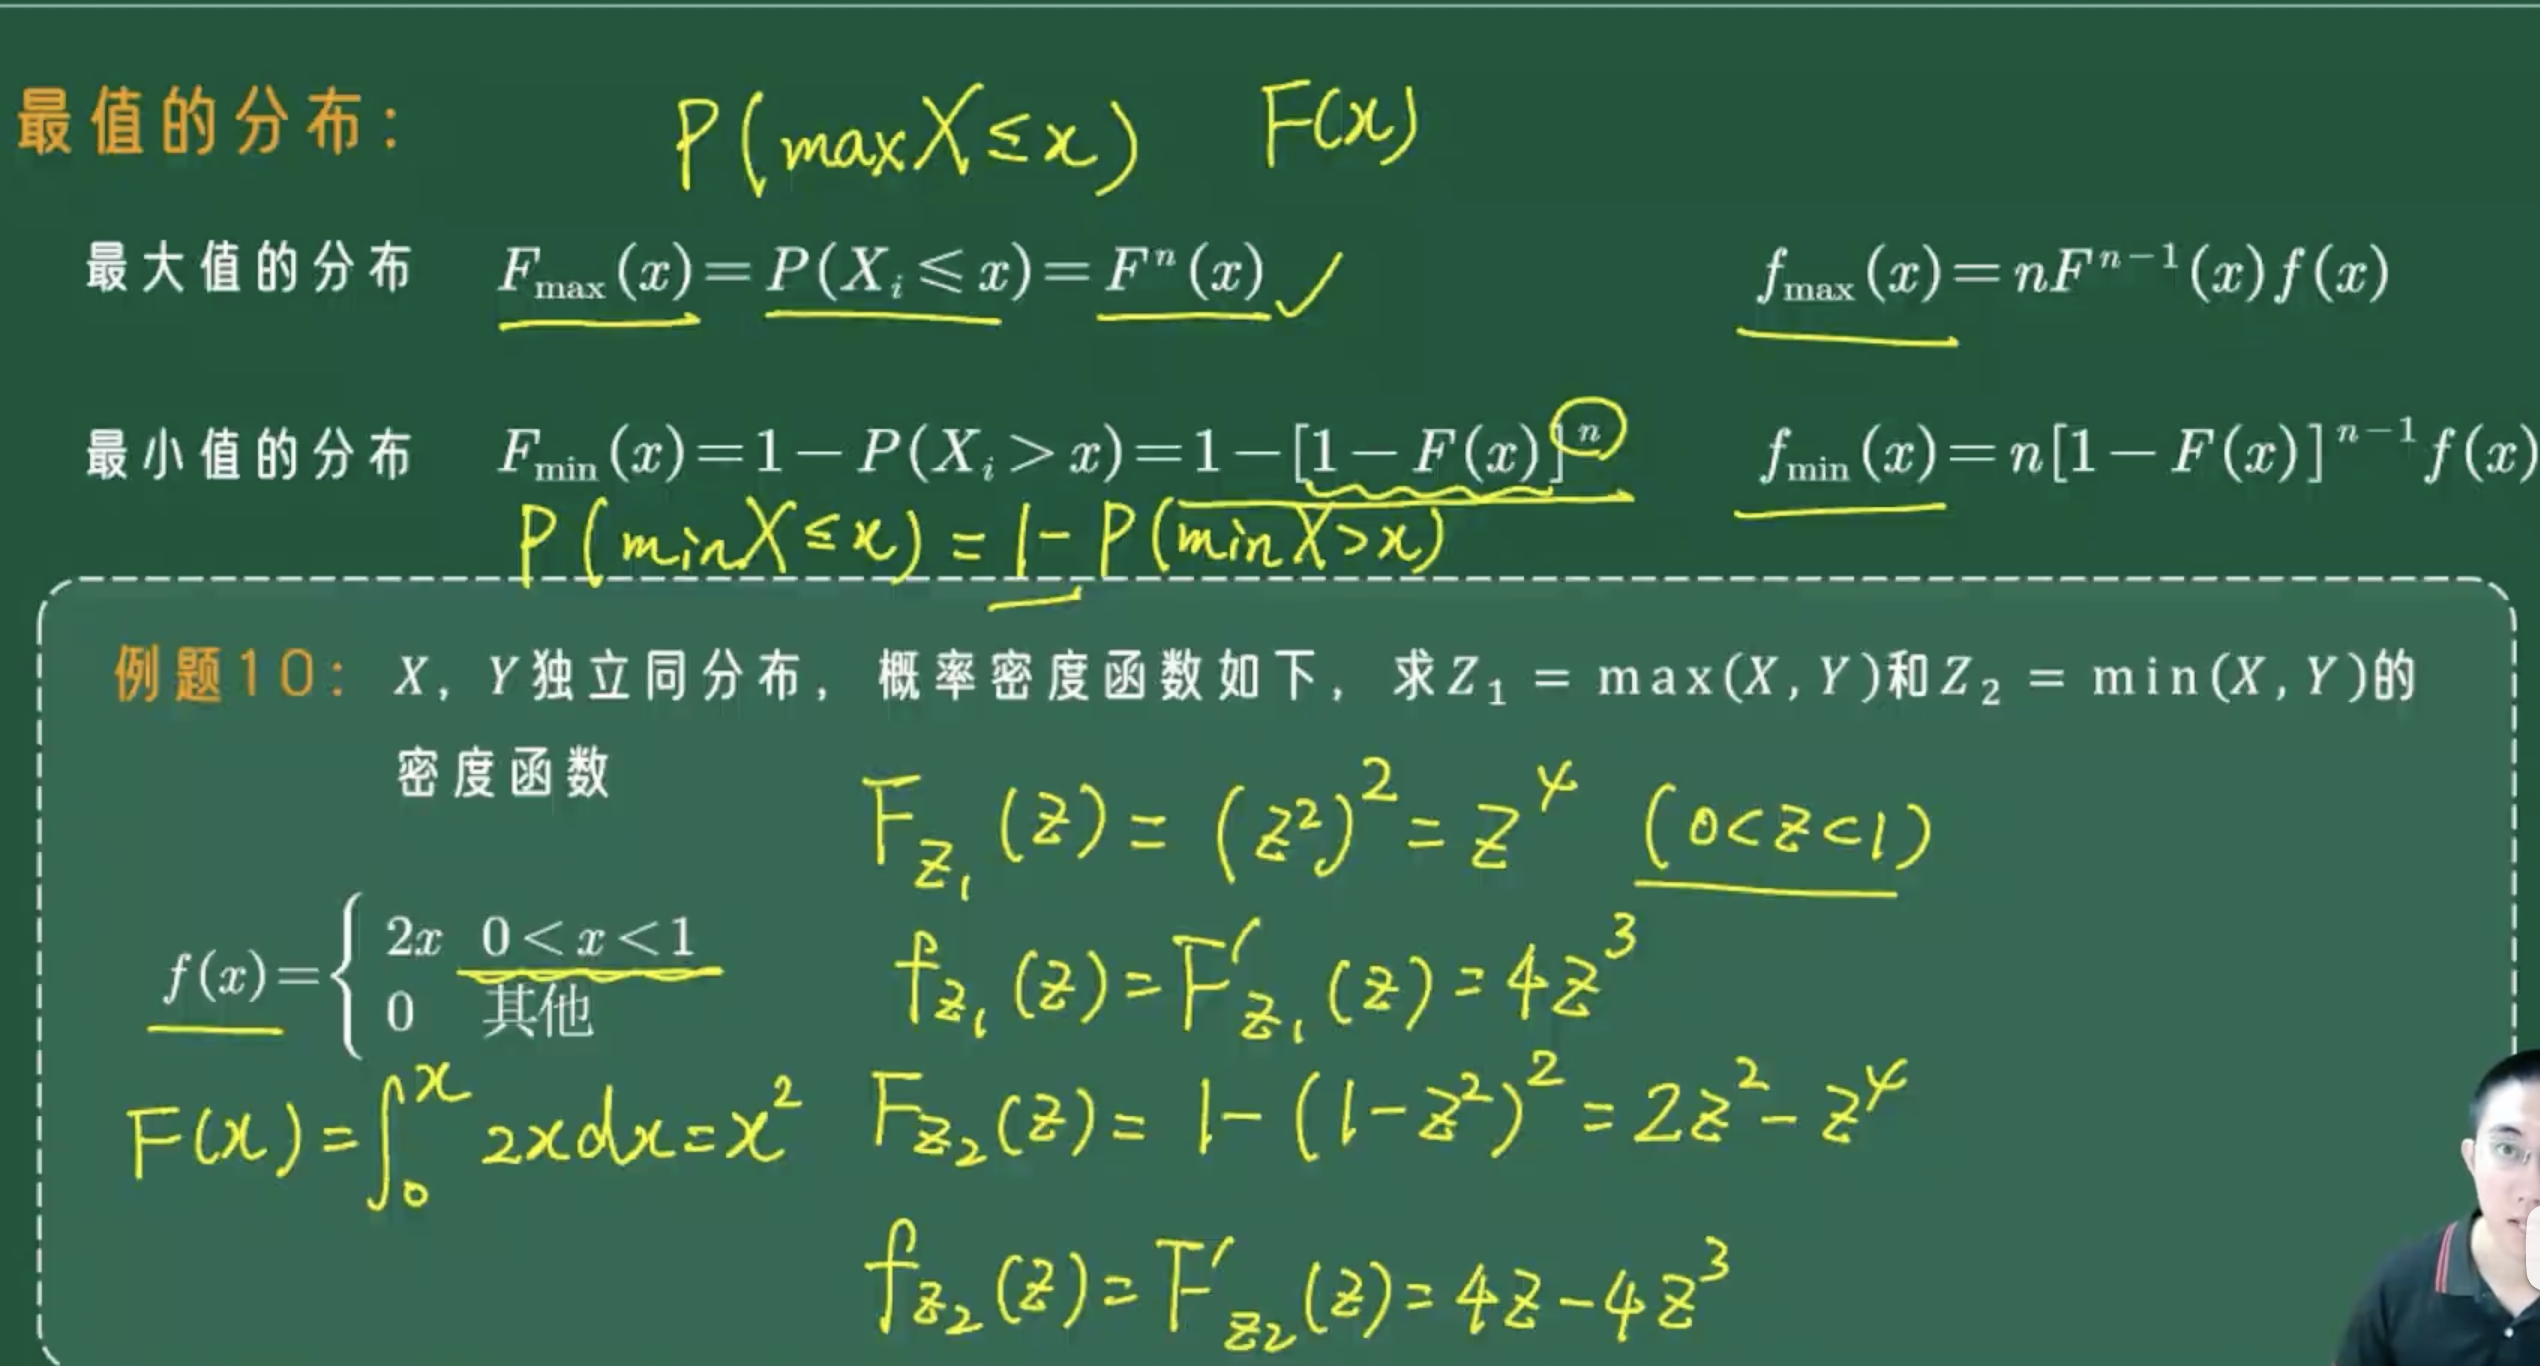 最值的分布： P(maxX≤x) F(x)
最大值的分布 F_max(x)=P(X_i⩽x)=F^n(x)✓ f_max(x)=nF^{n-1}(x)f(x)
最小值的分布 F_min(x)=1-P(X_i>x)=1-[1-F(x)]^n f_min(x)=n[1-F(x)]^{n-1}f(x)
P(minX≤x)=1-P(minX>x)
例题10： X，Y独立同分布，概率密度函数如下，求Z_1 = max(X,Y)和Z_2 = min(X,Y)的
密度函数
F_{Z_1}(z)=(z^2)^2=z^4 (0<z<1)
f(x)={2x 0<x<1
0 其他
f_{Z_1}(z)=F'_{Z_1}(z)=4z^3
F(x)=∫_0^x 2xdx=x^2
F_{Z_2}(z)=1-(1-z^2)^2=2z^2-z^4
f_{Z_2}(z)=F'_{Z_2}(z)=4z-4z^3